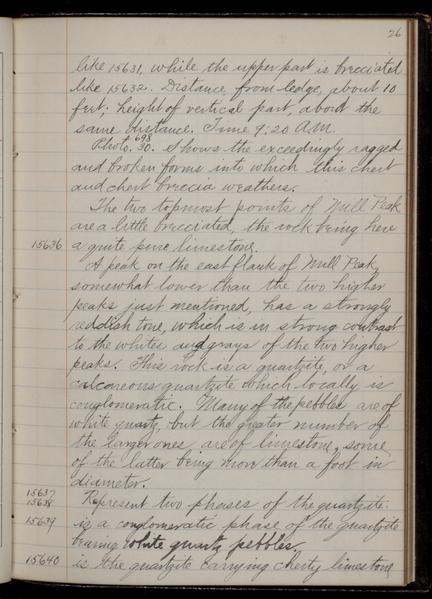 26
like 15631, while the upper part is brecciated
like 15632. Distance from ledge, about 10
feet; height of vertical part, about the
same distance. Time 9:20 A.M.
698
Photo. 30. Shows the exceedingly ragged
and broken forms into which this chert
and chert breccia weathers.
The two topmost points of Mill Peak
are a little brecciated, the rock being here
15636 a quite pure limestone.
A peak on the east flank of Mill Peak,
somewhat lower than the two higher
peaks just mentioned, has a strongly
reddish tone, which is in strong contrast
to the whites and grays of the two higher
peaks. This rock is a quartzite, or a
calcareous quartzite which locally is
conglomeratic. Many of the pebbles are of
white quartz, but the greater number of
the larger ones are of limestone, some
of the latter being more than a foot in
diameter.
15637
15638 Represent two phases of the quartzite.
15639 is a conglomeratic phase of the quartzite
bearing white quartz pebbles
15640 is the quartzite carrying cherty limestone